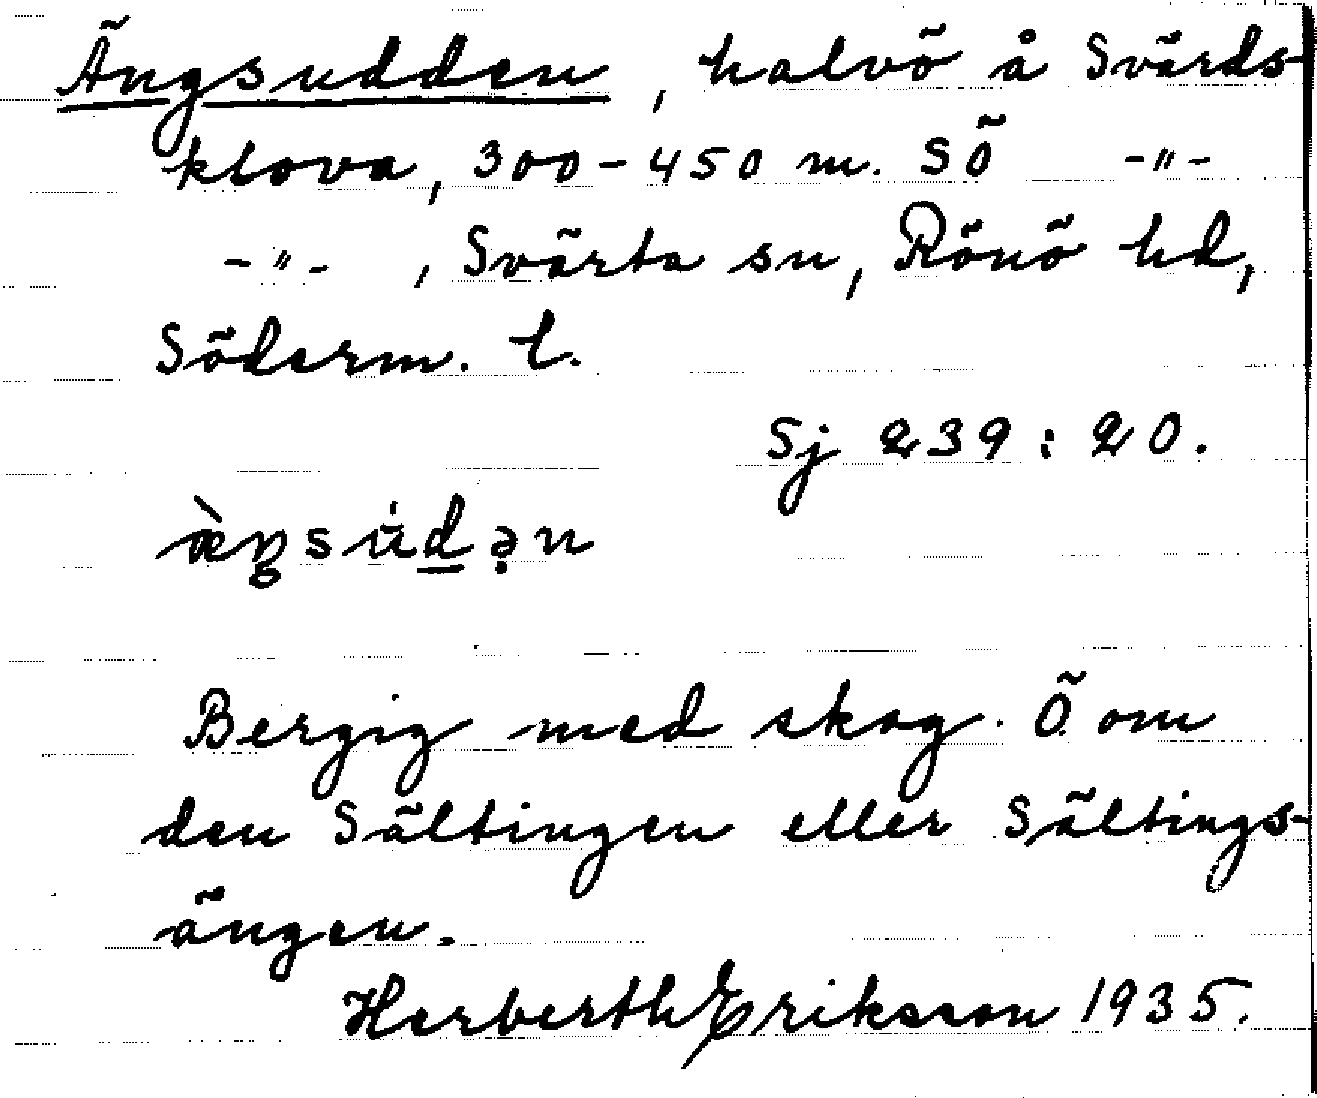 Ängsudden, halvö å Svärds-
klova, 300-450 m. SÖ -"-
-"- , Svärta sn, Rönö hd,
Söderm. l.
Sj 239:20.
æ̀ŋsu̇dən
Bergig med skog. Ö om
den Sältingen eller Sältings-
ängen.
Herberth Eriksson 1935.